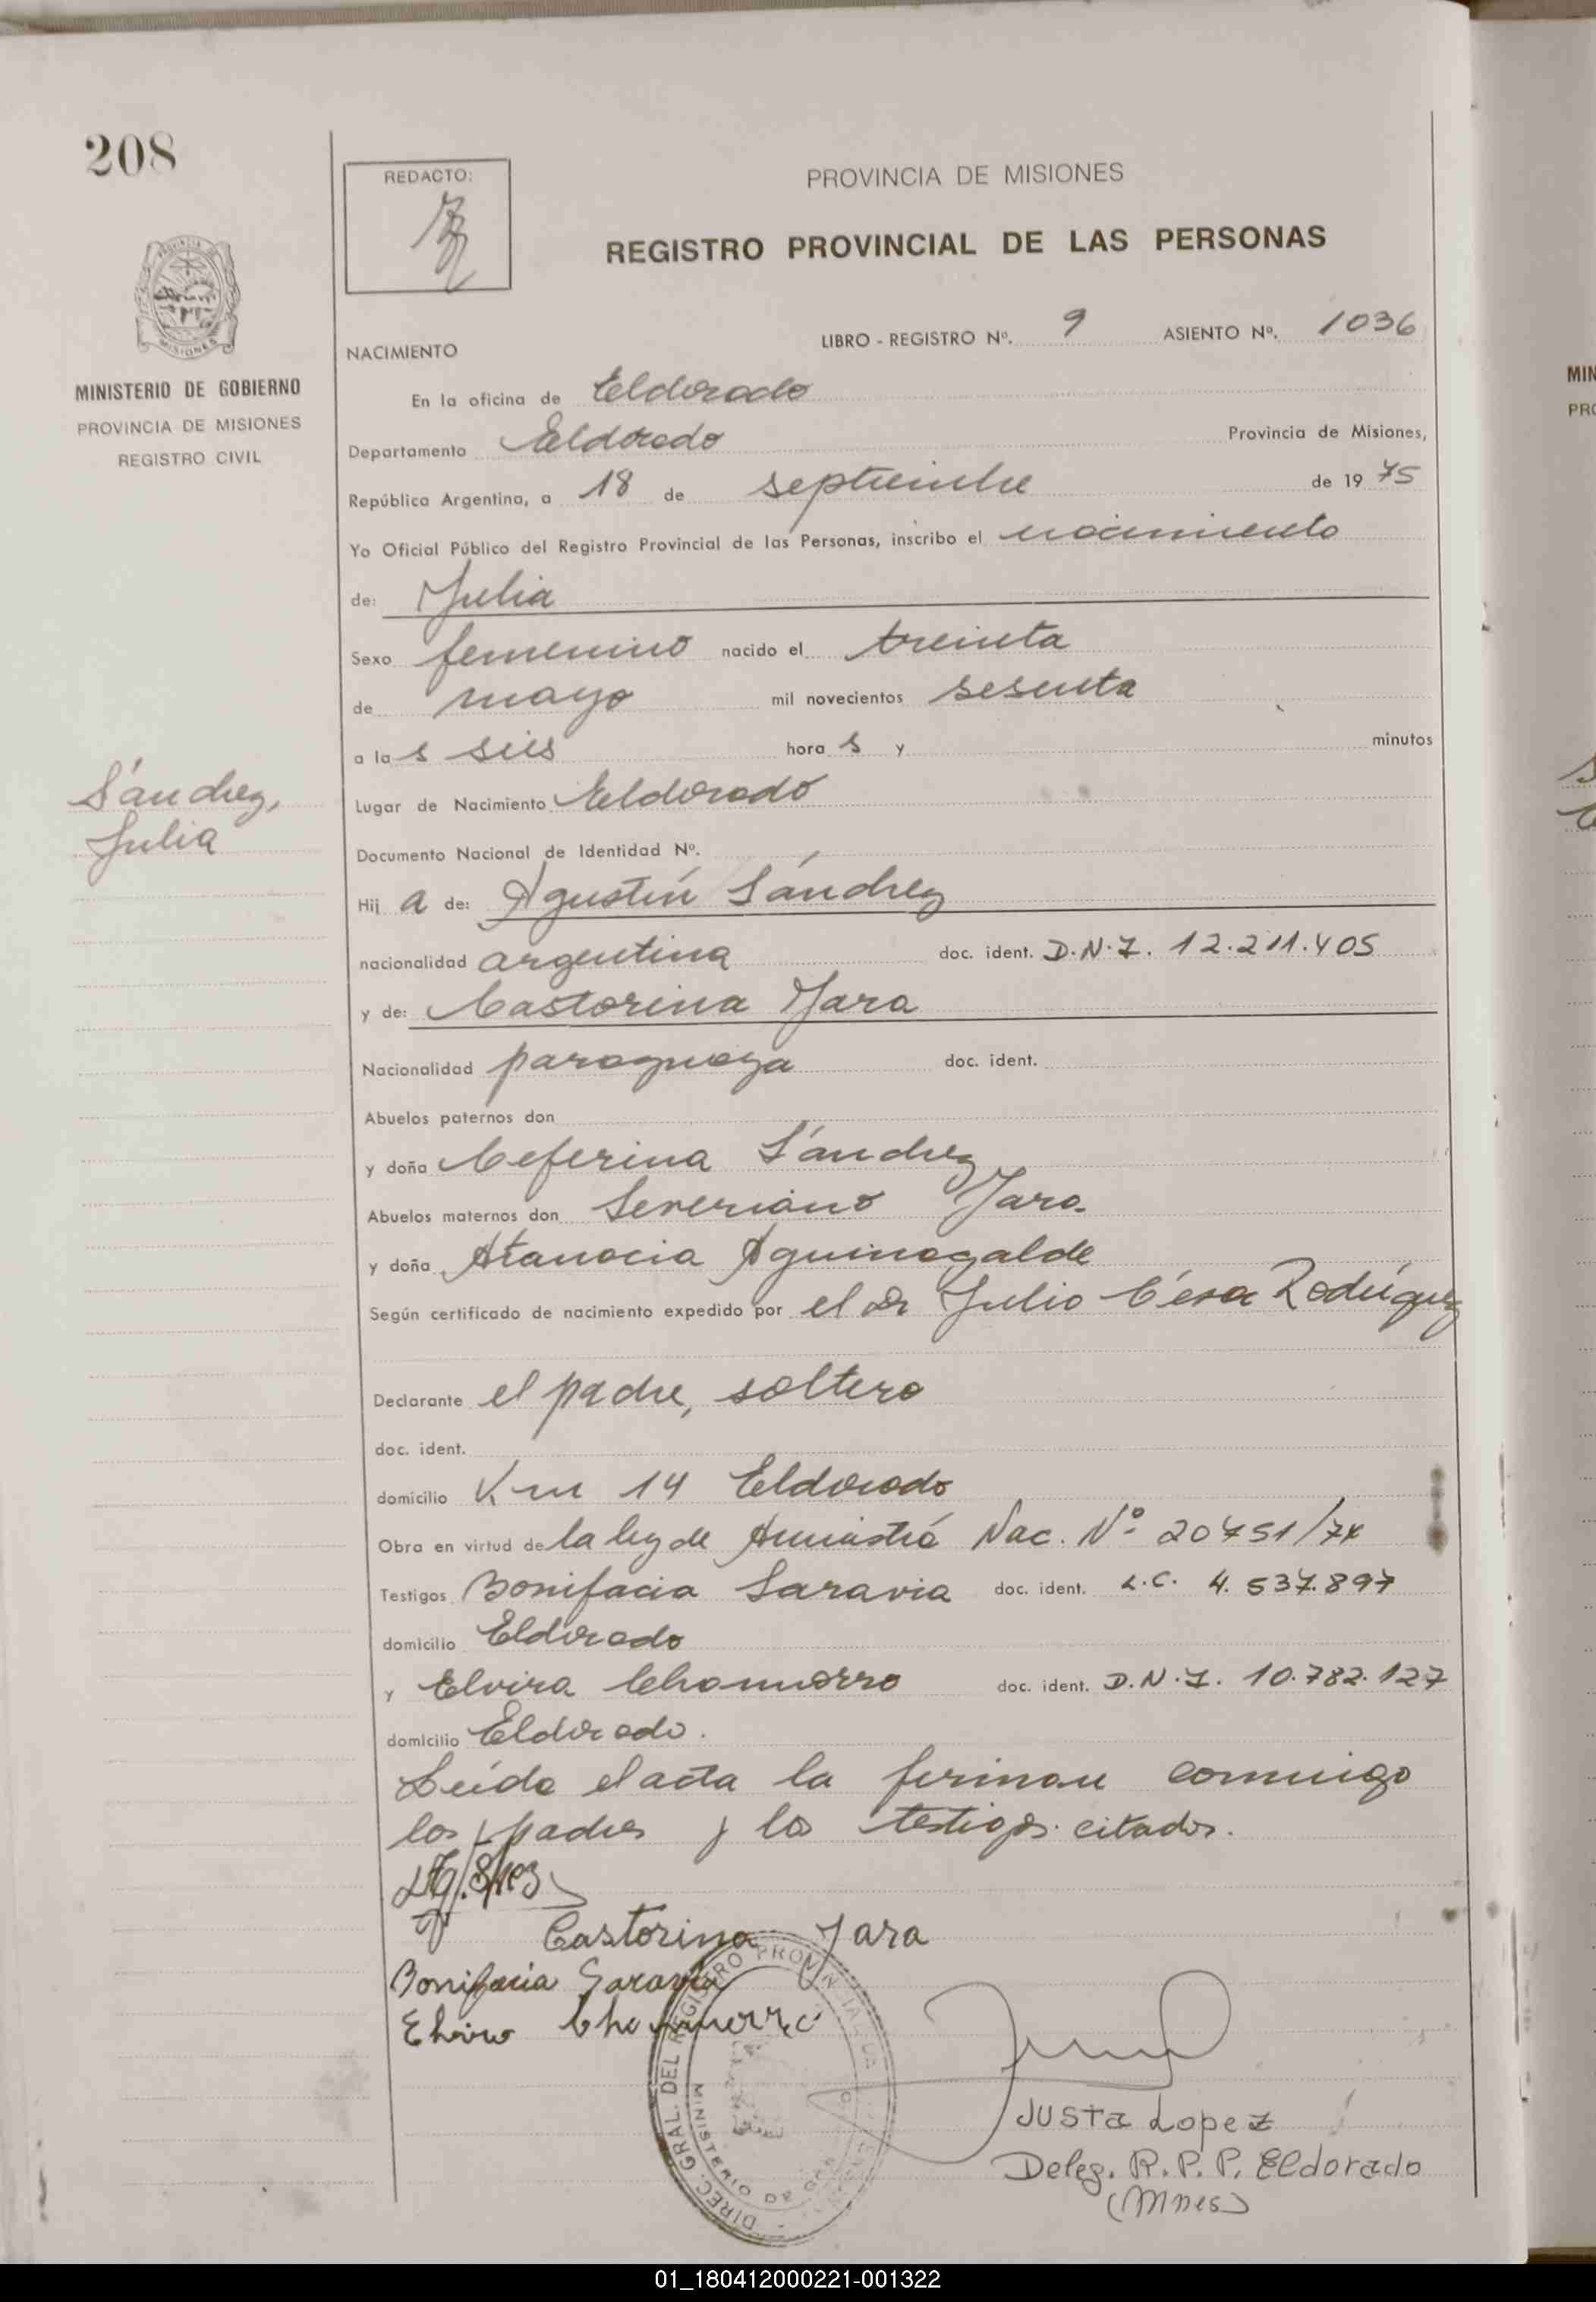 208
REDACTO:
PROVINCIA DE MISIONES
REGISTRO PROVINCIAL DE LAS PERSONAS
MISIONES
MINISTERIO DE GOBIERNO
PROVINCIA DE MISIONES
REGISTRO CIVIL
LIBRO - REGISTRO Nº. 9 ASIENTO Nº. 1036
NACIMIENTO
En la oficina de Eldorado
Departamento Eldorado Provincia de Misiones,
República Argentina, a 18 de septiembre de 1975
Yo Oficial Público del Registro Provincial de las Personas, inscribo el nacimiento
de: Julia
Sexo femenino nacido el treinta
de mayo mil novecientos sesenta
a las seis horas y minutos
Sánchez,
Julia
Lugar de Nacimiento Eldorado
Documento Nacional de Identidad Nº.
Hija de: Agustín Sánchez
nacionalidad argentina doc. ident. D.N.I. 12.211.405
y de: Castorina Jara
Nacionalidad paraguaya doc. ident.
Abuelos paternos don
y doña Ceferina Sánchez
Abuelos maternos don Severiano Jara
y doña Atanacia Aguinagalde
Según certificado de nacimiento expedido por el Dr Julio César Rodríguez
Declarante el padre, soltero
doc. ident.
domicilio Km 14 Eldorado
Obra en virtud de la ley de Amnistía Nac. Nº 20751/74
Testigos Bonifacia Saravia doc. ident. L.C. 4.537.897
domicilio Eldorado
y Elvira Chamorro doc. ident. D.N.I. 10.782.127
domicilio Eldorado.
Leída el acta la firman conmigo
los padres y los testigos citados.
Castorina Jara
Bonifacia Saravia
Elvira Chamorro
DIREC. GRAL. DEL REGISTRO PROVINCIAL
MINISTERIO DE
Justa Lopez
Deleg. R.P.P. Eldorado
(Mnes)
MIN
PRO
01_180412000221-001322